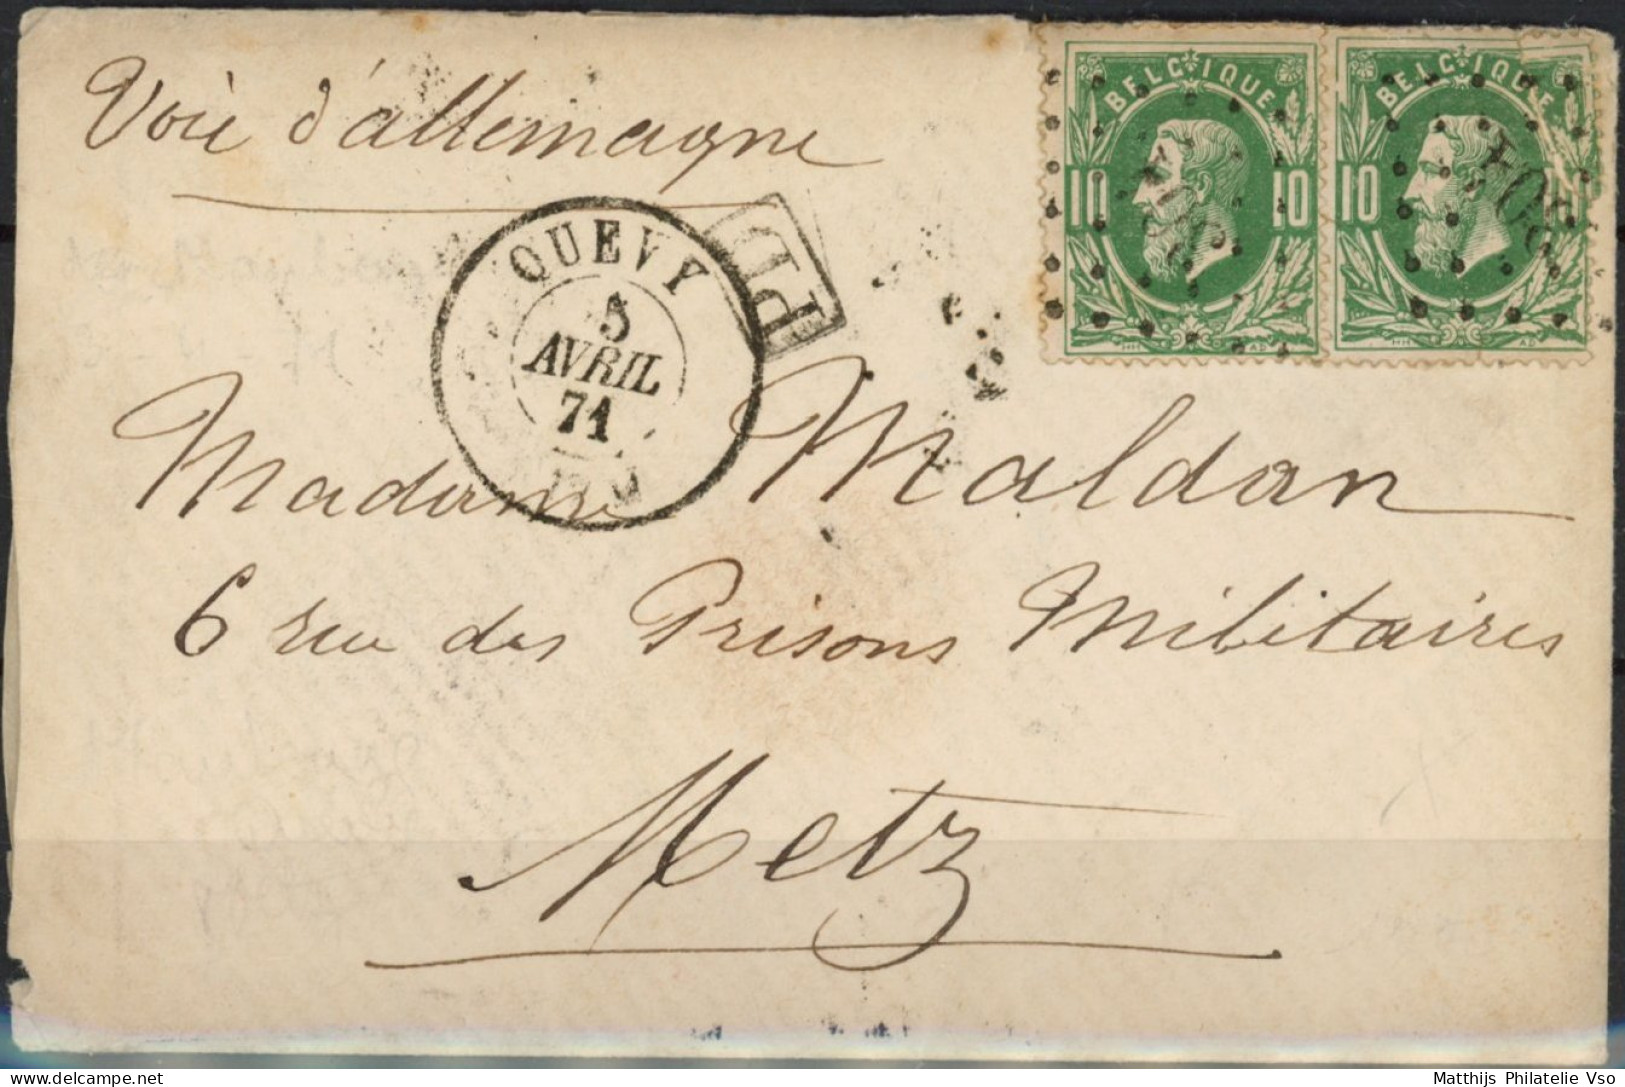 Voie d'allemagne
BELGIQUE
10 10
304
BELGIQUE
10 10
304
PD
QUEVY
5
AVRIL
71
Madame Maldan
6 rue des Prisons Militaires
Metz
Matthijs Philatelie Vso